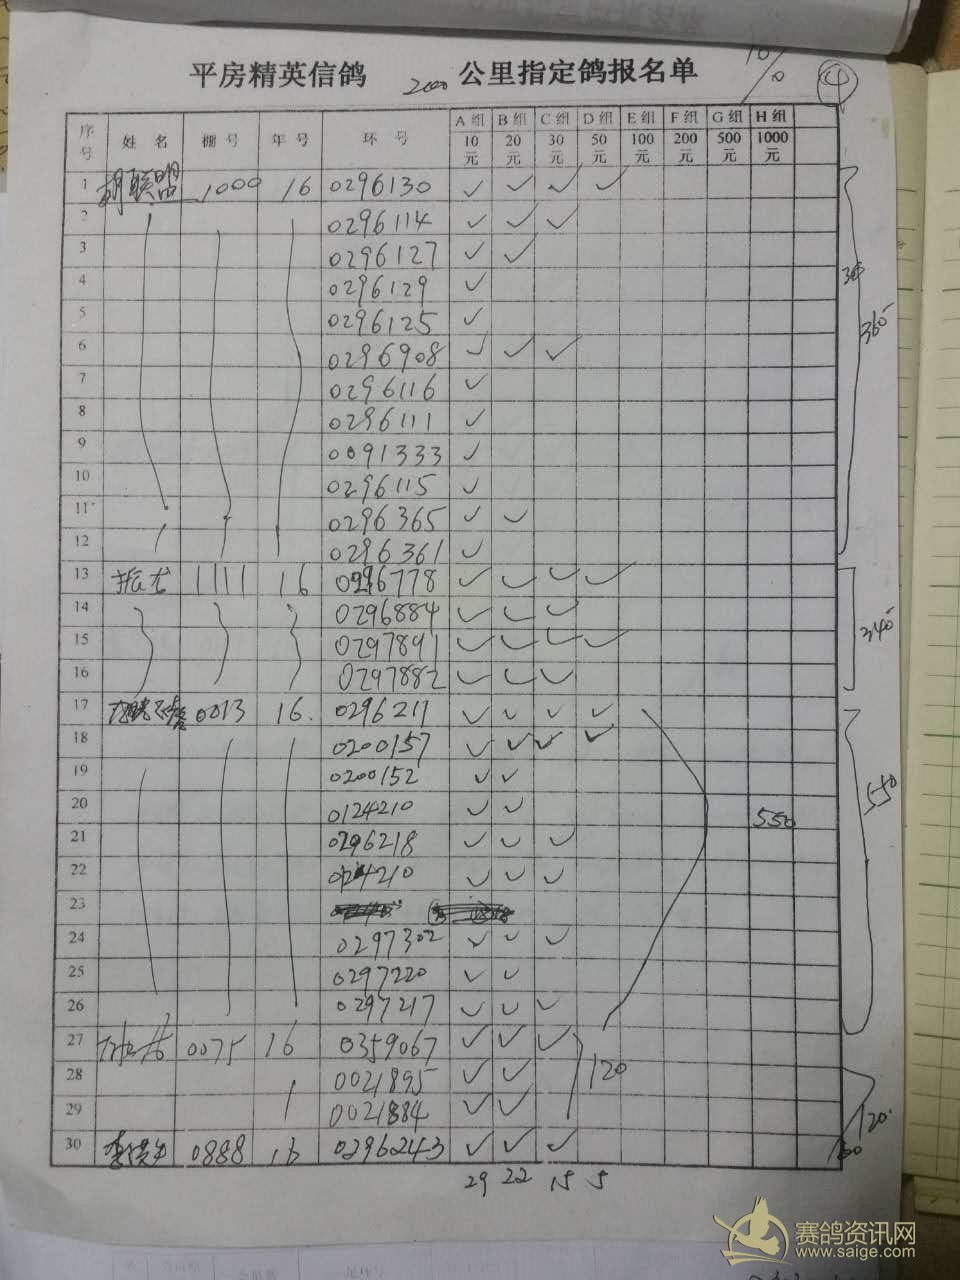 10%
④
平房精英信鸽 2000 公里指定鸽报名单
序号 姓 名 棚 号 年 号 环 号 A 组 10 元 B 组 20 元 C 组 30 元 D 组 50 元 E 组 100 元 F 组 200 元 G 组 500 元 H 组 1000 元
1 胡联盟 1000 16 0296130 ✓ ✓ ✓ ✓
2 0296114 ✓ ✓ ✓
3 0296127 ✓ ✓
4 0296129 ✓
5 0296125 ✓
6 0296908 ✓ ✓ ✓
7 0296116 ✓
8 0296111 ✓
9 0091333 ✓
10 0296115 ✓
11 0296365 ✓ ✓
12 0296361 ✓
360
13 1111 16 0296778 ✓ ✓ ✓ ✓
14 0296884 ✓ ✓ ✓
15 0297891 ✓ ✓ ✓ ✓
16 0297882 ✓ ✓ ✓
340
17 0013 16. 0296211 ✓ ✓ ✓ ✓
18 0200157 ✓ ✓ ✓ ✓
19 0200152 ✓ ✓
20 0124210 ✓ ✓ 550
21 0296218 ✓ ✓ ✓
22 0124210 ✓ ✓ ✓
23
24 0297302 ✓ ✓ ✓
25 0297220 ✓ ✓
26 0297217 ✓ ✓ ✓
550
27 0075 16 0359067 ✓ ✓ ✓
28 0021895 ✓ ✓ 120
29 0021884 ✓ ✓
120
30 0888 16 0296243 ✓ ✓ ✓
29 22 15 5
赛鸽资讯网
www.saige.com